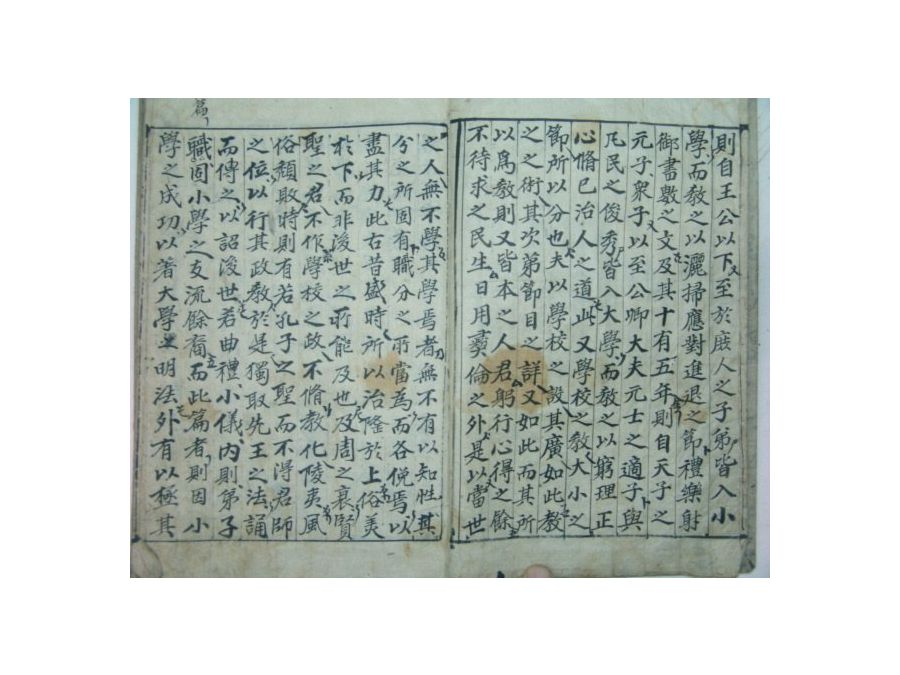 則自王公以下至於庶人之子弟皆入小
學而敎之以灑掃應對進退之節禮樂射
御書數之文及其十有五年則自天子之
元子衆子以至公卿大夫元士之適子與
凡民之俊秀皆入大學而敎之以窮理正
心脩已治人之道此又學校之敎大小之
節所以分也夫以學校之設其廣如此敎
之之術其次第節目之詳又如此而其所
以爲敎則又皆本之人君躬行心得之餘
不待求之民生日用彛倫之外是以當世
之人無不學其學焉者無不有以知性其
分之所固有職分之所當為而各俛焉以
盡其力此古昔盛時所以治隆於上俗美
於下而非後世之所能及也及周之衰賢
聖之君不作學校之政不脩教化陵夷風
俗頹敗時則有若孔子之聖而不得君師
之位以行其政敎於是獨取先王之法誦
而傳之以詔後世若曲禮小儀內則弟子
職固小學之支流餘裔而此篇者則因小
學之成功以著大學之明法外有以極其
篇